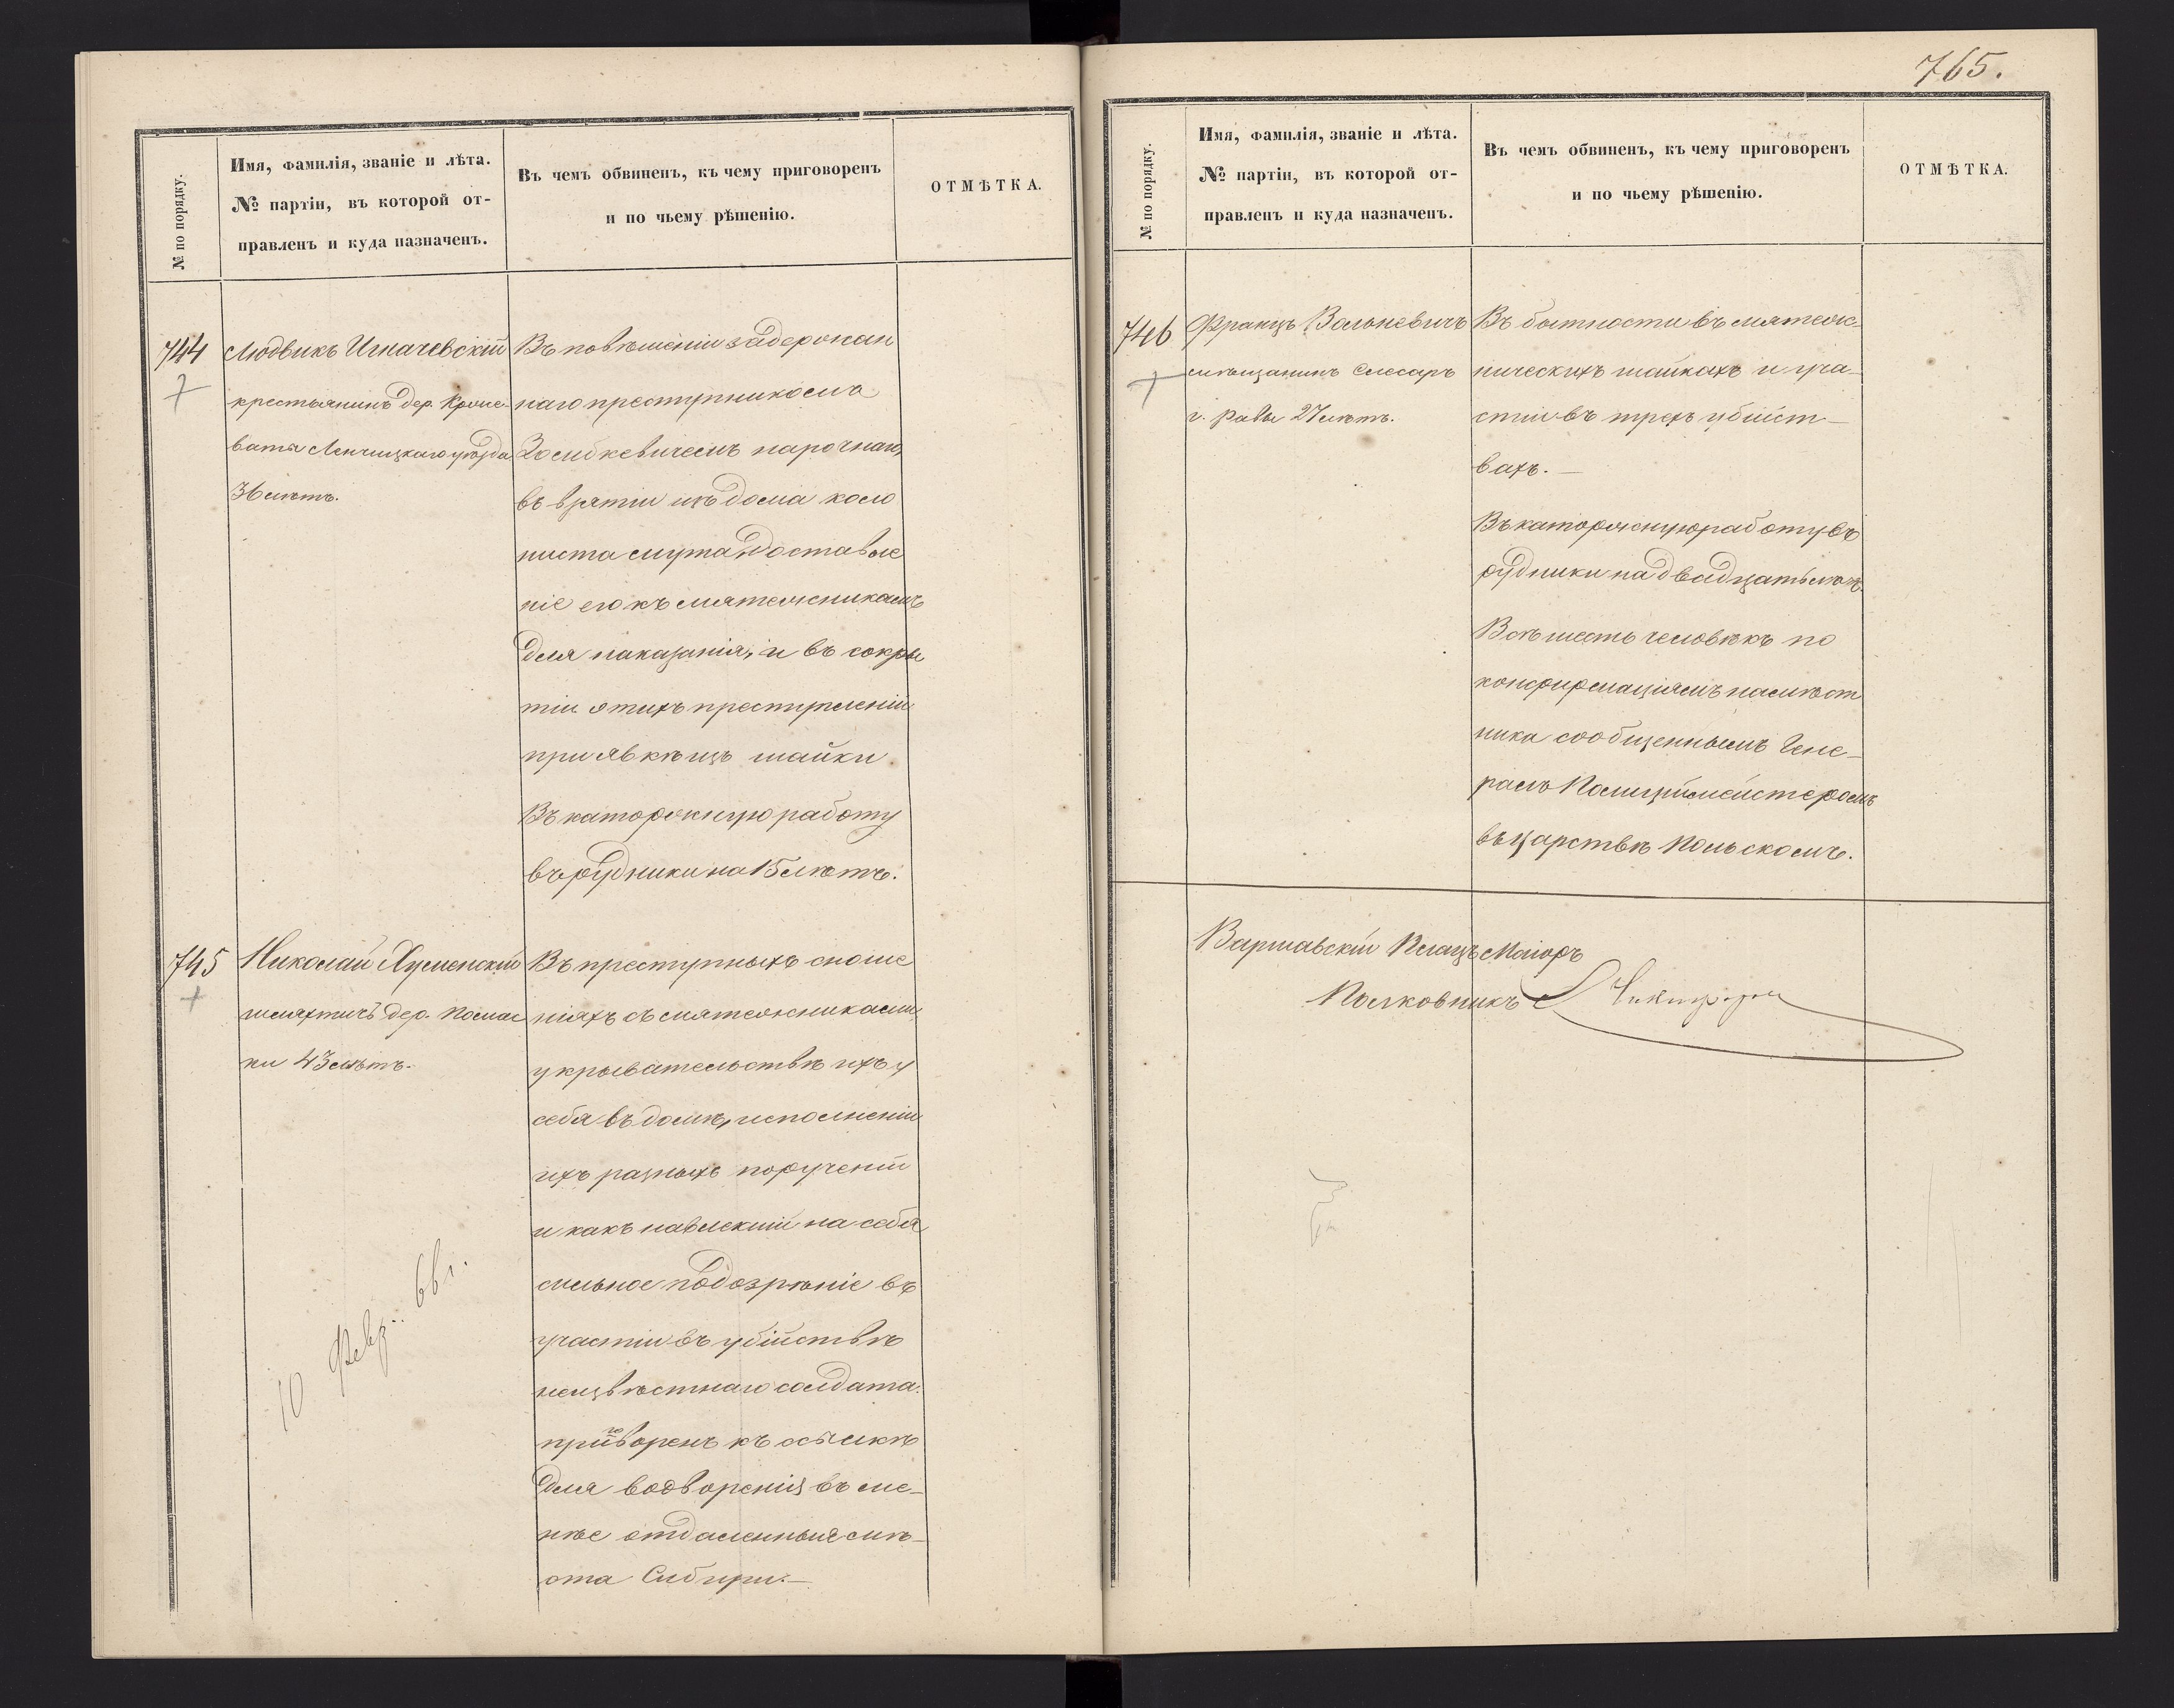 765.
№ по порядку.
Имя, фамилія, званіе и лѣта.
№ партіи, въ которой от-
правленъ и куда назначенъ.
Въ чемъ обвиненъ, къ чему приговоренъ
и по чьему рѣшенію.
ОТМѢТКА.
744
Людвикъ Игначевскій
крестьянинъ дер. Кроше-
ваты Ленчицкаго уѣзда
36 лѣтъ.
Въ повѣшеніи задержан
наго преступникомъ
нарочнаго,
въ взятіи изъ дома коло
ниста и доставле
ніе его къ мятежникамъ
для наказанія, и въ сокры
тіи этихъ преступленій
при явкѣ изъ шайки
Въ каторжную работу
въ рудники на 15 лѣтъ.
745
Николай
шляхтичъ дер.
ки 43 лѣтъ.
Въ преступныхъ сноше
ніяхъ съ мятежниками,
укрывательствѣ ихъ у
себя въ домѣ, исполненіи
ихъ разныхъ порученій
и какъ навлекшій на себя
сильное подозрѣніе въ
участіи въ убійствѣ
неизвѣстнаго солдата.
приговоренъ къ ссылкѣ
для водворенія въ ме-
нѣе отдаленныя мѣ-
ста Сибири.—
10 Февр. 66 г.
№ по порядку.
Имя, фамилія, званіе и лѣта.
№ партіи, въ которой от-
правленъ и куда назначенъ.
Въ чемъ обвиненъ, къ чему приговоренъ
и по чьему рѣшенію.
ОТМѢТКА.
746
Францъ Волькевичъ
мѣщанинъ слесарь
г. Равы 27 лѣтъ.
Въ бытности въ мятеж-
ническихъ шайкахъ и уча-
стіи въ трехъ убійст-
вахъ.—
Въ каторжную работу въ
рудники на двадцать лѣтъ.
Всѣ шесть человѣкъ по
конфирмаціямъ намѣст
ника сообщеннымъ Гене-
ралъ Полиціймейстеромъ
въ Царствѣ Польскомъ.
Варшавскій Плацъ Маіоръ
Полковникъ